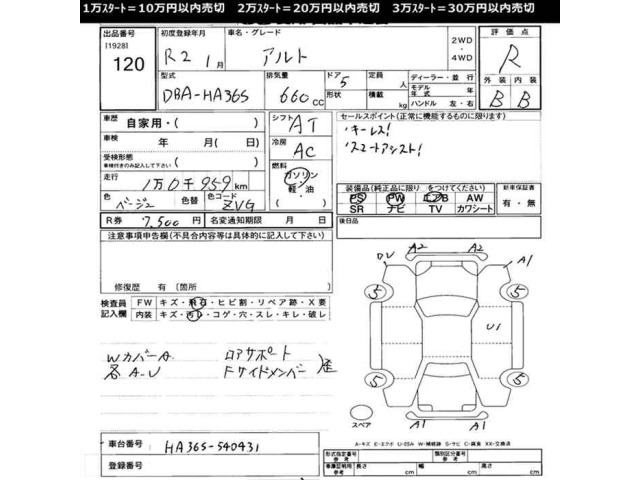 1万スタート＝10万円以内売切　2万スタート＝20万円以内売切　3万スタート＝30万円以内売切
出品番号
[1928]
120
初度登録年月
R2 1月
車名・グレード
アルト
2WD
・
4WD
評価点
R
型式
DBA-HA36S
排気量
660cc
ドア
5
形状
定員 人
積載 kg
ディーラー・並行
モデル
年式
ハンドル 左・右
外装 内装
B B
車歴
自家用・( )
車検
年 月(日)
受検形態
車検付きのみ記入して下さい
( )
走行
1万0千959km
色
ベージュ
色替
色コード
ZVG
シフト
AT
冷房
AC
燃料
ガソリン
・
軽・油
セールスポイント(正常に機能するものに限ります)
・キーレス!
・スマートアシスト!
装備品(純正品に限り をつけてください)
PS PW エアB AW
SR ナビ TV カワシート
新車保証書
有・無
R券
7,500円
名変通知期限 月 日
後日品
注意事項申告欄(不具合内容等は具体的に記入して下さい)
修復歴 有 〔箇所 〕
検査員
記入欄
FW キズ・飛石・ヒビ割・リペア跡・X要
内装 キズ・汚レ・コゲ・穴・スレ・キレ・破レ
WカバーA
各A-U
ロアサポート
Fサイドメンバー
A2 A2
A1
5 5
U1
5 5
A1 A1
スペア
A-キズ E-エクボ U-凹み W-補修跡 S-サビ C-腐食 XX-交換済
車台番号
HA36S-540431
登録番号
形式指定番号
類別区分番号
車庫証明用
長さ cm
幅 cm
高さ cm